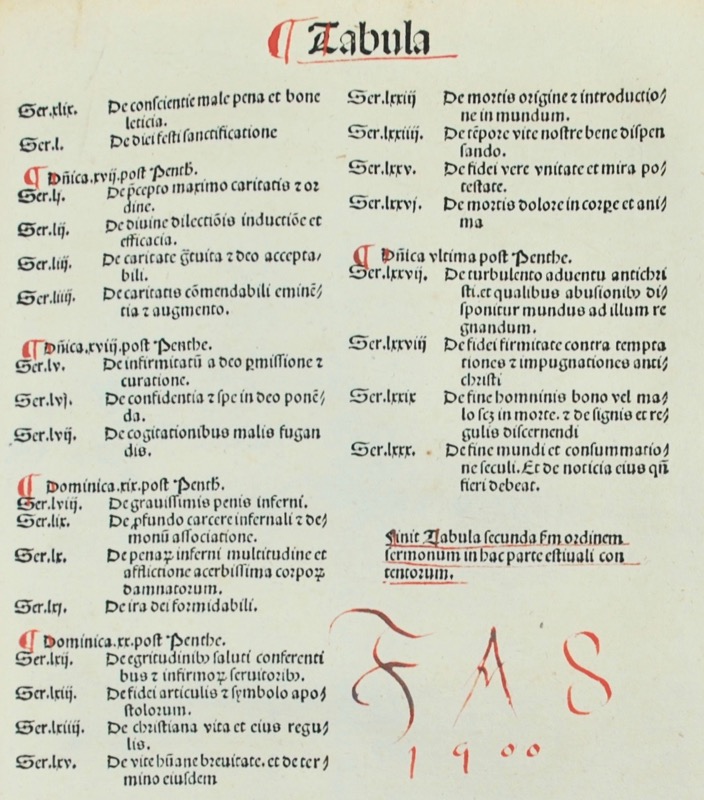 ¶ Tabula
Ser.xlix. De conscientie male pena et bone
leticia.
Ser.l. De diei festi sanctificatione
¶ Dñica.xvij.post Penth̄.
Ser.lj. De p̄cepto maximo caritatis ⁊ or
dine.
Ser.lij. De diuine dilectiōis inductiōe et
efficacia.
Ser.liij. De caritate gͣtuita ⁊ deo accepta/
bili.
Ser.liiij. De caritatis cōmendabili eminē/
tia ⁊ augmento.
¶ Dñica.xviij.post Penthe.
Ser.lv. De infirmitatū a deo ꝑmissione ⁊
curatione.
Ser.lvj. De confidentia ⁊ spe in deo ponē/
da.
Ser.lvij. De cogitationibus malis fugan
dis.
¶ Dominica.xix.post Penth̄.
Ser.lviij. De grauissimis penis inferni.
Ser.lix. De ꝓfundo carcere infernali ⁊ de/
monū associatione.
Ser.lx. De penaꝝ inferni multitudine et
afflictione acerbissima corpoꝝ
damnatorum.
Ser.lxj. De ira dei formidabili.
¶ Dominica.xx.post Penthe.
Ser.lxij. De egritudinibꝰ saluti conferenti
bus ⁊ infirmoꝝ seruitoribꝰ.
Ser.lxiij. De fidei articulis ⁊ symbolo apo/
stolorum.
Ser.lxiiij. De christiana vita et eius regu/
lis.
Ser.lxv. De vite hūane breuitate. et de ter/
mino eiusdem
Ser.lxxiij De mortis origine ⁊ introductio/
ne in mundum.
Ser.lxxiiij. De tēpore vite nostre bene dispen
sando.
Ser.lxxv. De fidei vere vnitate et mira po/
testate.
Ser.lxxvj. De mortis dolore in corꝑe et ani/
ma
¶ Dñica vltima post Penthe.
Ser.lxxvij. De turbulento aduentu antichri
sti.et qualibus abusionibꝰ di/
sponitur mundus ad illum re
gnandum.
Ser.lxxviij De fidei firmitate contra tempta
tiones ⁊ impugnationes anti/
christi
Ser.lxxix De fine homninis bono vel ma/
lo scꝫ in morte. ⁊ de signis et re/
gulis discernendi
Ser.lxxx. De fine mundi et consummatio/
ne seculi. Et de noticia eius qñ
fieri debeat.
Finit Tabula secunda s̄m ordinem
sermonum in hac parte estiuali con
tentorum.
F A S
1900